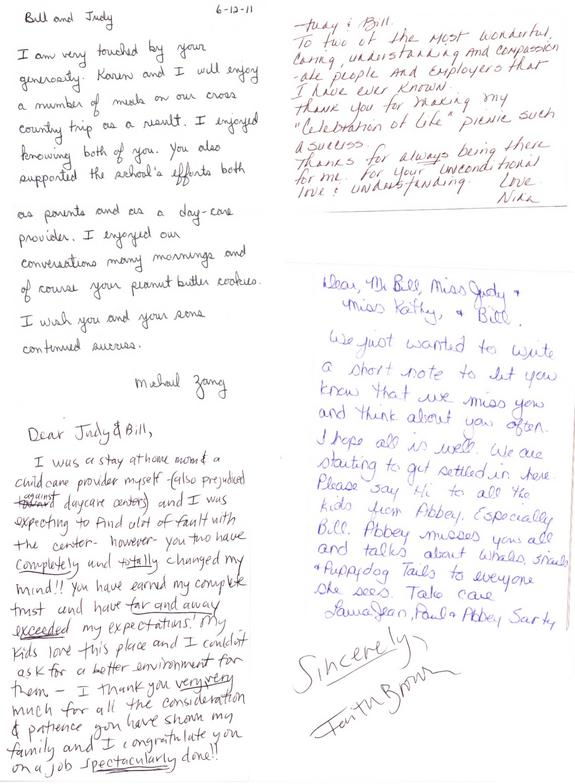 6-12-11
Bill and Judy
I am very touched by your
generosity. Karen and I will enjoy
a number of meals on our cross
country trip as a result. I enjoyed
knowing both of you. You also
supported the school's efforts both
as parents and as a day-care
provider. I enjoyed our
conversations many mornings and
of course your peanut butter cookies.
I wish you and your sons
continued success.
Michael Zang
Judy & Bill.
To two of the most wonderful,
caring, understanding and compassion
-ate people and employers that
I have ever known.
Thank you for making my
"Celebration of Life" picnic such
a success.
Thanks for always being there
for me. For your unconditional
love & understanding. Love
Nina
Dear, Mr Bill, Miss Judy &
Miss Kathy, & Bill.
We just wanted to write
a short note to let you
know that we miss you
and think about you often.
I hope all is well. We are
starting to get settled in here.
Please say Hi to all the
kids from Abbey. Especially
Bill. Abbey misses you all
and talks about whales, snails
& Puppydog Tails to everyone
she sees. Take care
Laura Jean, Paul & Abbey
Dear Judy & Bill,
I was a stay at home mom & a
childcare provider myself (also prejudiced
against daycare centers) and I was
expecting to find alot of fault with
the center - however - you two have
completely and totally changed my
mind!! You have earned my complete
trust and have far and away
exceeded my expectations! My
kids love this place and I couldn't
ask for a better environment for
them - I thank you very very
much for all the consideration
& patience you have shown my
family and I congratulate you
on a job spectacularly done!!
Sincerely,
Faith Brown